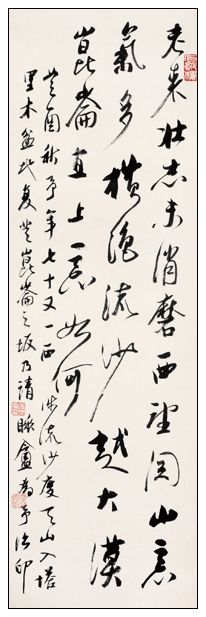 老来壮志未消磨西望関山意
氣多横绝流沙越大漠
崑崙直上意如何
癸酉秋予年七十又一西涉流沙度天山入塔
里木盆地复登崑崙之坂乃请盦为予治印